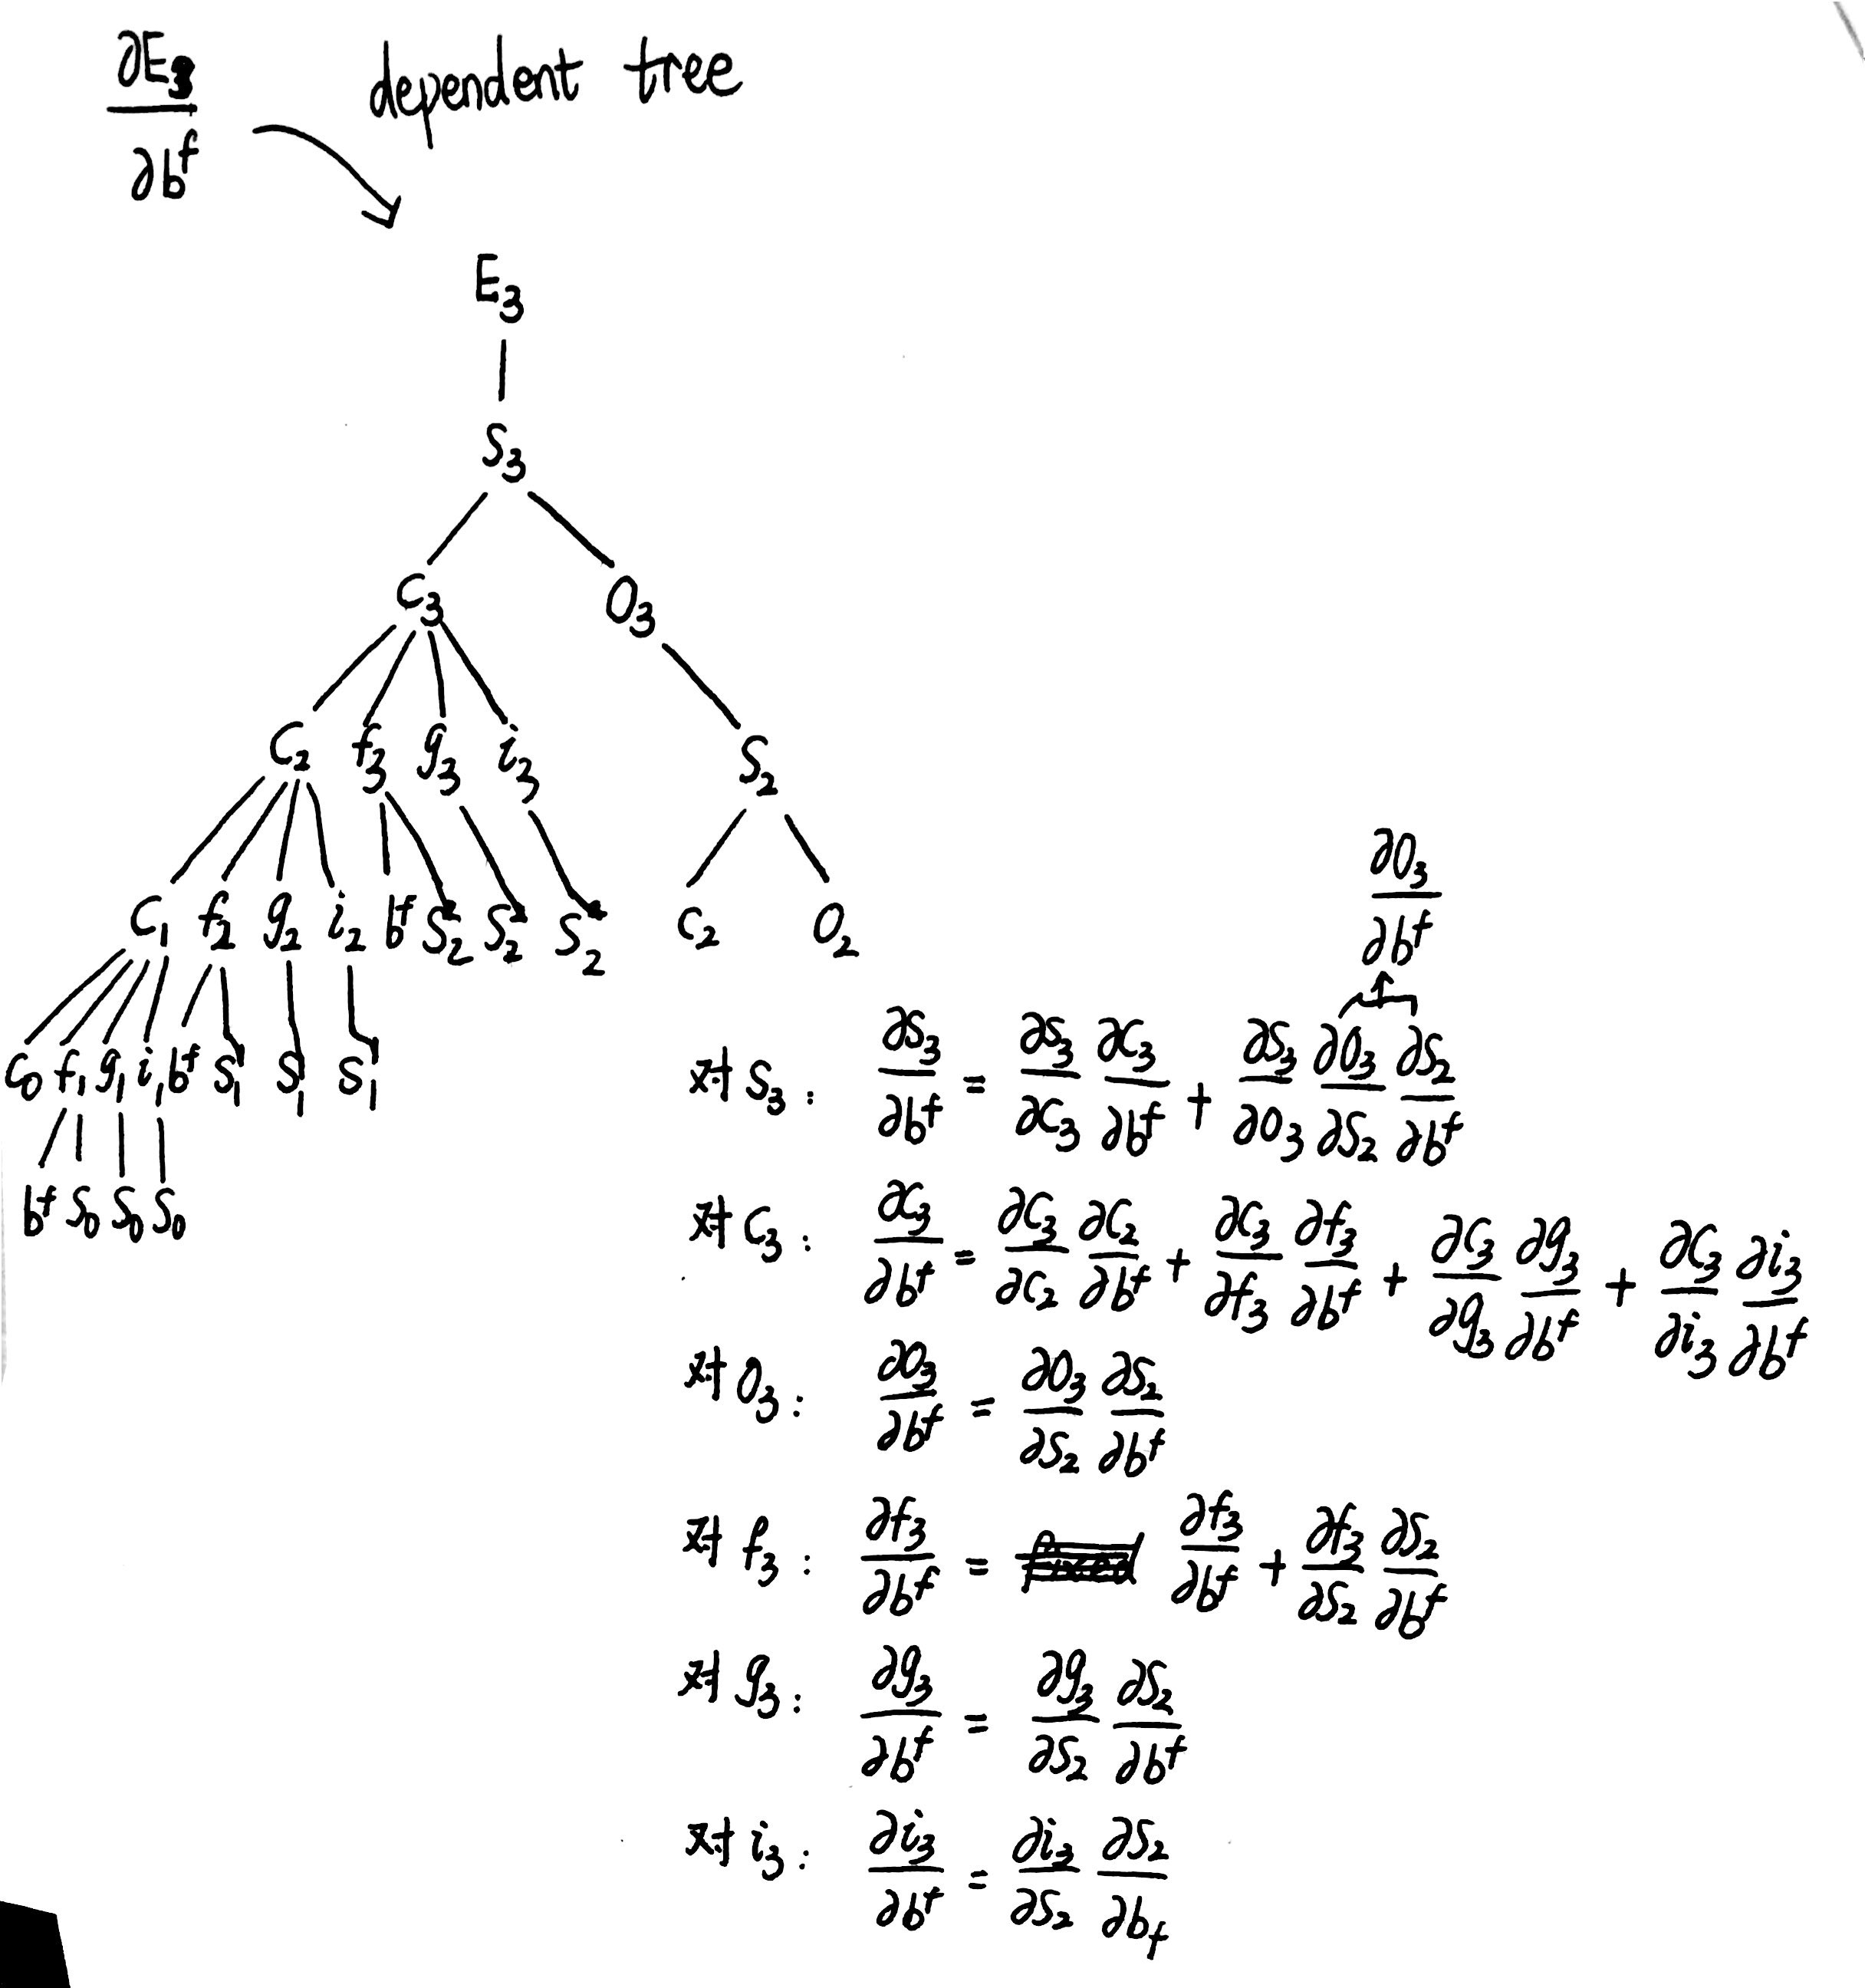 ∂E₃/∂bᶠ dependent tree
E₃
S₃
C₃ O₃
C₂ f₃ g₃ i₃ S₂
C₁ f₂ g₂ i₂ bᶠ S₂ S₂ S₂ C₂ O₂
C₀ f₁ g₁ i₁ bᶠ S₁ S₁ S₁
bᶠ S₀ S₀ S₀
∂O₃/∂bᶠ
对 S₃: ∂S₃/∂bᶠ = ∂S₃/∂C₃ ∂C₃/∂bᶠ + ∂S₃/∂O₃ ∂O₃/∂S₂ ∂S₂/∂bᶠ
对 C₃: ∂C₃/∂bᶠ = ∂C₃/∂C₂ ∂C₂/∂bᶠ + ∂C₃/∂f₃ ∂f₃/∂bᶠ + ∂C₃/∂g₃ ∂g₃/∂bᶠ + ∂C₃/∂i₃ ∂i₃/∂bᶠ
对 O₃: ∂O₃/∂bᶠ = ∂O₃/∂S₂ ∂S₂/∂bᶠ
对 f₃: ∂f₃/∂bᶠ = ∂f₃/∂bᶠ + ∂f₃/∂S₂ ∂S₂/∂bᶠ
对 g₃: ∂g₃/∂bᶠ = ∂g₃/∂S₂ ∂S₂/∂bᶠ
对 i₃: ∂i₃/∂bᶠ = ∂i₃/∂S₂ ∂S₂/∂b_f